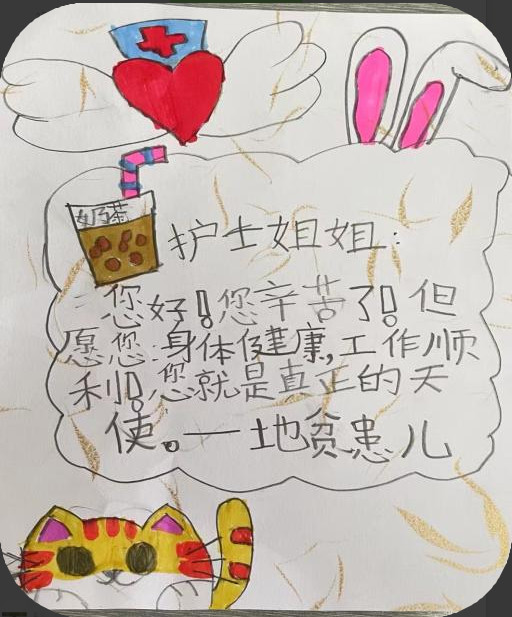 奶茶
护士姐姐:
您好!您辛苦了!但
愿您身体健康,工作顺
利!您就是真正的天
使。一地贫患儿